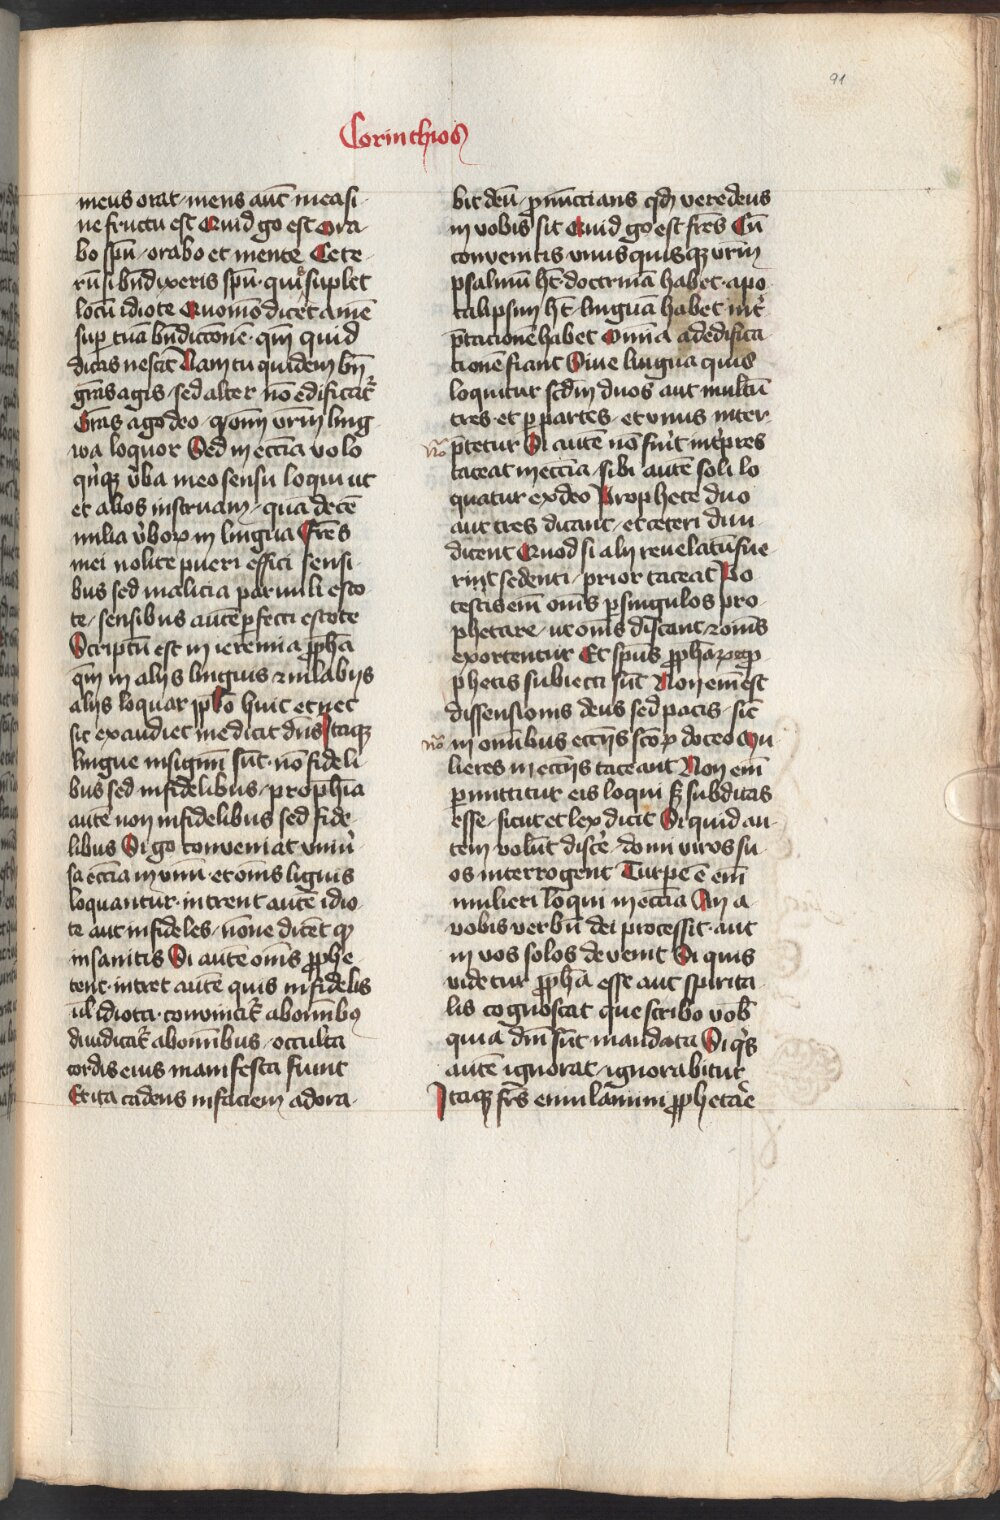 91
Corinthios
meus orat mens aut̄ mea si
ne fructu est Quid g̊ est Ora
bo spū orabo et mente Cete
rū si bn̄dixeris spū qui suplet
locū idiote Quomō dicet amē
sup tuā bn̄dictionē qm̄ quid
dicas nescit Nam tu quidem bn̄
gr̄as agis sed alter nō edificatr̄
Gr̄as ago deo qm̄ vr̄m ling
wa loquor Sed in eccīa volo
qn̄q v̄ba meo sensu loqui ut
et alios instruam quā decē
milia v̄boꝝ in lingua Fr̄es
mei nolite pueri effici sensi
bus sed malicia paruuli esto
te sensibus autē pfecti estote
Scriptū est in ieremia ꝓphā
qm̄ in alijs linguis ⁊ in labijs
alijs loquar pplo huic et nec
sic exaudiet me dicit dn̄s Itaqꝫ
lingue in signū sūt nō fideli
bus sed infidelibus prophīa
autē non infidelibus sed fide
libus Si g̊ conueniat vniu̇
sa eccīa in vnū et om̄s liguis
loquantur intrent autē idio
te aut infideles nōne dicēt qꝫ
insanitis Si autē om̄s ꝓphe
tent intret autē quis infidelis
ul̄ idiota conuincitr̄ ab omībꝰ
diiudicatr̄ ab omībus occulta
cordis eius manifesta fiunt
Et ita cadens in faciem adora
bit deū ꝓnūctians qd̄ vere deus
in vobis sit Quid g̊ est fr̄es Cū
conuenitis vnusquisqꝫ vr̄m
psalmū ht̄ doctrinā habet apo
calipsim ht̄ linguā habet int̄
p̄tacionē habet Omīa ad edifica
tionē fiant Siue lingua quis
loquitur scd̄m duos aut multū
tres et ꝑ partes et vnus inter
p̄tetur Si autē nō fūit int̄pres
taceat in eccīa sibi autē soli lo
quatur ex deo Prophete duo
aut tres dicant et ceteri diiu
dicent Quod si alij reuelatū fue
rint sedenti prior taceat Po
testis em̄ om̄s ꝑ singulos pro
phetare ut om̄s discant ⁊ om̄s
exortentur Et spūs ꝓphaꝝ ꝓ
phetis subiecti sūt Non em̄ est
dissensionis deus sed pacis sic̄
in omībus eccījs sc̄oꝝ doceo Mu
lieres in eccījs taceant Non em̄
ꝑmittitur eis loqui sꝫ subditas
esse sicut et lex dicit Si quid au
tem volūt disc̄e domi viros su
os interrogent Turpe ē em̄
mulieri loqui in eccīa An a
vobis verbū dei processit aut
in vos solos deuenit Si quis
videtur ꝓphā esse aut spirita
lis cognoscat que scribo vob̄
quia dn̄i sūt mandata Si qͥs
autē ignorat ignorabitur
Itaqꝫ fr̄s emulamini ꝓphetar̄e